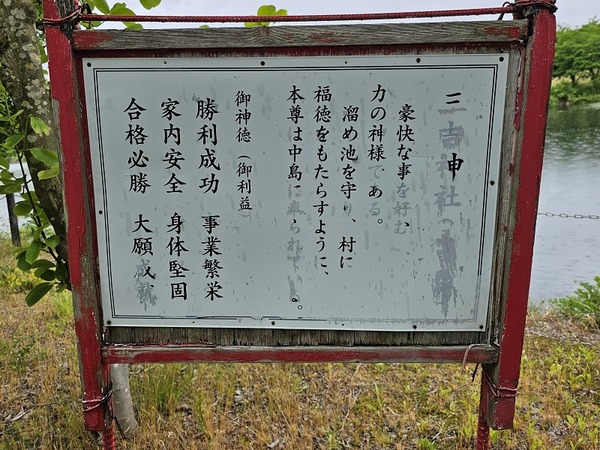 三吉神社
豪快な事を好む、
力の神様である。
溜め池を守り、村に
福徳をもたらすように、
本尊は中島に奉られている。
御神徳（御利益）
勝利成功　事業繁栄
家内安全　身体堅固
合格必勝　大願成就